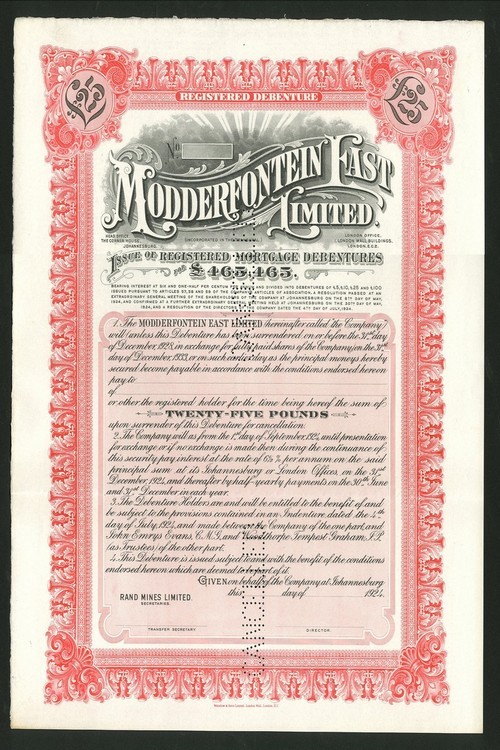 REGISTERED DEBENTURE
£25
£25
No
MODDERFONTEIN EAST
LIMITED.
HEAD OFFICE,
THE CORNER HOUSE,
JOHANNESBURG.
INCORPORATED IN THE
LONDON OFFICE,
LONDON WALL BUILDINGS,
LONDON, E.C.2.
ISSUE OF REGISTERED MORTGAGE DEBENTURES
FOR £465,465.
BEARING INTEREST AT SIX AND ONE-HALF PER CENTUM AND DIVIDED INTO DEBENTURES OF £5, £10, £25 AND £100
ISSUED PURSUANT TO ARTICLES 57, 58 AND 59 OF THE COMPANY'S ARTICLES OF ASSOCIATION, A RESOLUTION PASSED AT AN
EXTRAORDINARY GENERAL MEETING OF THE SHAREHOLDERS OF THE COMPANY AT JOHANNESBURG ON THE DAY OF MAY,
1924, AND CONFIRMED AT A FURTHER EXTRAORDINARY GENERAL MEETING HELD AT JOHANNESBURG ON THE DAY OF MAY,
1924, AND A RESOLUTION OF THE DIRECTORS OF THE COMPANY DATED THE 4TH DAY OF JULY, 1924.
1. The MODDERFONTEIN EAST LIMITED (hereinafter called "the Company")
will (unless this Debenture has been surrendered, on or before the 31st day
of December, 1928, in exchange for fully paid shares of the Company) on the 31st
day of December, 1933, or on such earlier day as the principal moneys hereby
secured become payable in accordance with the conditions endorsed hereon
pay to
of
or other the registered holder for the time being hereof the sum of
TWENTY-FIVE POUNDS
upon surrender of this Debenture for cancellation.
2. The Company will as from the 1st day of September, 1924, until presentation
for exchange or if no exchange is made then during the continuance of
this security pay interest at the rate of 6½% per annum on the said
principal sum at its Johannesburg or London Offices, on the 31st
December, 1924, and thereafter by half-yearly payments on the 30th June
and 31st December in each year.
3. The Debenture Holders are and will be entitled to the benefit of and
be subject to the provisions contained in an Indenture dated the 4th
day of July, 1924, and made between the Company of the one part, and
John Emrys Evans, C.M.G, and Woolthorpe Tempest Graham, J.P.
(as Trustees) of the other part.
4. This Debenture is issued subject to and with the benefit of the conditions
endorsed hereon which are deemed to be part of it.
GIVEN on behalf of the Company at Johannesburg
this day of 1924.
RAND MINES LIMITED.
SECRETARIES.
TRANSFER SECRETARY
DIRECTOR.
CANCELLED